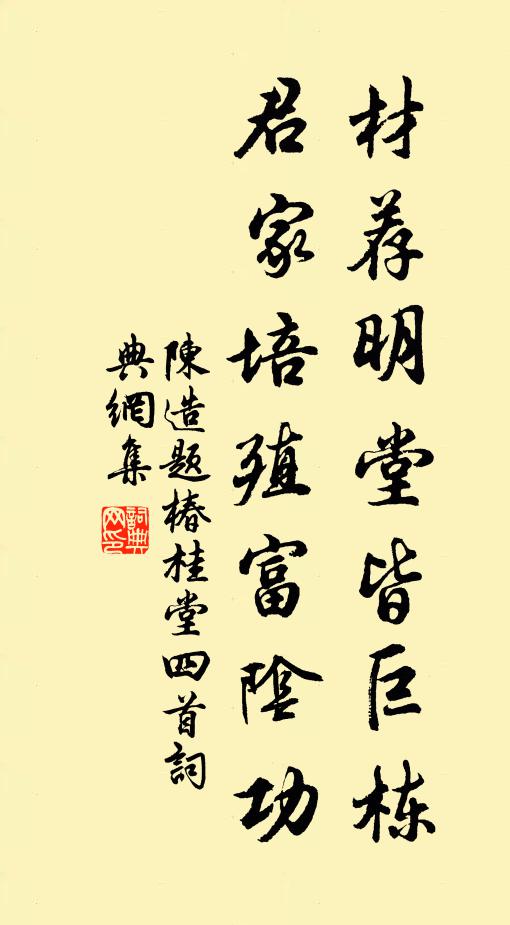 材荐明堂皆巨栋
君家培殖富陰功
陳造題椿桂堂四首詞
典網集
詞典
网印